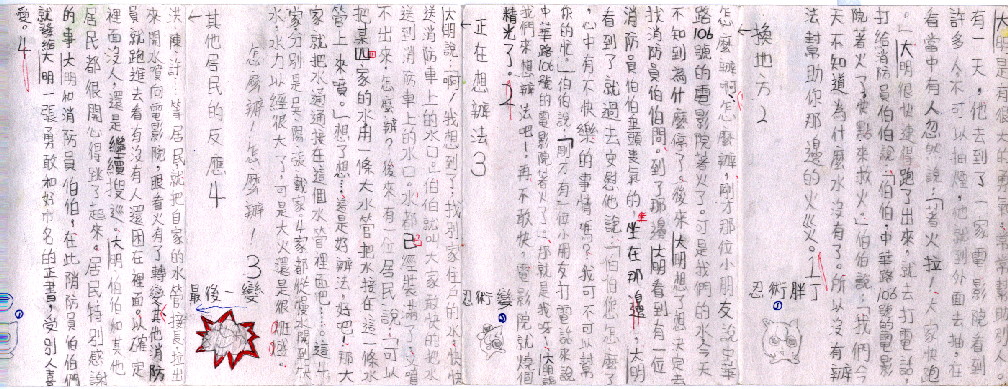 有一天,他去電影院看到
許多人不可以抽煙,他就到外面去抽。
看當中有人忽然說:「著火拉!」大家快跑
。」大明很快速得跑了出來,就去打電話
打給消防員伯伯說:「伯伯,中華路106號的電影
院著火了,快點來救火」伯伯說:「我們今
天不知道為什麼水沒有了。所以沒有辦
法幫助你那邊的火災。1
忍術胖丁
換地方2
怎麼辦啊怎麼辦,剛才那位小朋友說華
路106號的電影院著火了。可是我們的水今天
不知到為什麼停了。後來大明想了想決定去
找消防員伯伯問。到了那邊大明看到有一位
消防員伯伯垂頭喪氣的坐在那邊,大明
看到了就過去安慰他說:「伯伯您怎麼了
,心中有不快樂的事情嗎?我可不可以幫
你的忙。」伯伯說:「剛才有一位小朋友打電話來說
中華路106號的電影院著火了…那就是我呀…大明說
我們來想辦法吧!再不敢快,電影院就燒個
精光了。」2
忍術變
正在想辦法3
大明說:啊!我想到了,找別家住戶的水,快快
送到消防車上的水口。」伯伯就叫大家敢快的把水
送到消防車上的水口。水都已經裝滿了…還噴
不出來,怎麼辦?後來有一位居民說:「可以
把某四家的水用一條大水管把水接在這一條水
管上來噴。」想了想…這是好辦法,好吧!那大
家就把水通通接在這個水管裡面吧…。這4
家分別是吳陳張戴家。4家都從慢水開到快
水,水力以經很大了,可是大火還是很旺盛
怎麼辦 怎麼辦!3
最後一變
其他居民的反應4
洪陳許…等居民就把自家的水管接長拉出
來開水噴向電影院。眼看火有了轉變其他消防
員就跑進去看有沒有人還困在裡面。以確定
裡面沒人,還是繼續搜巡。大明伯伯和其他
居民都很開心得跳了起來。居民特別感謝
的事大明和消防員伯伯,在此消防員伯伯們
就發給大明一張勇敢和好市名的正書,受別人喜
愛。4